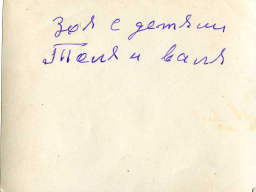 Зоя с детями
Толя и валя